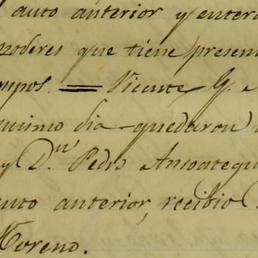 auto anterior y enter
poderes que tiene presen
Vicente G.
dia quedaron
y Dn. Pedro Ansoategui
auto anterior, recibio
Moreno.